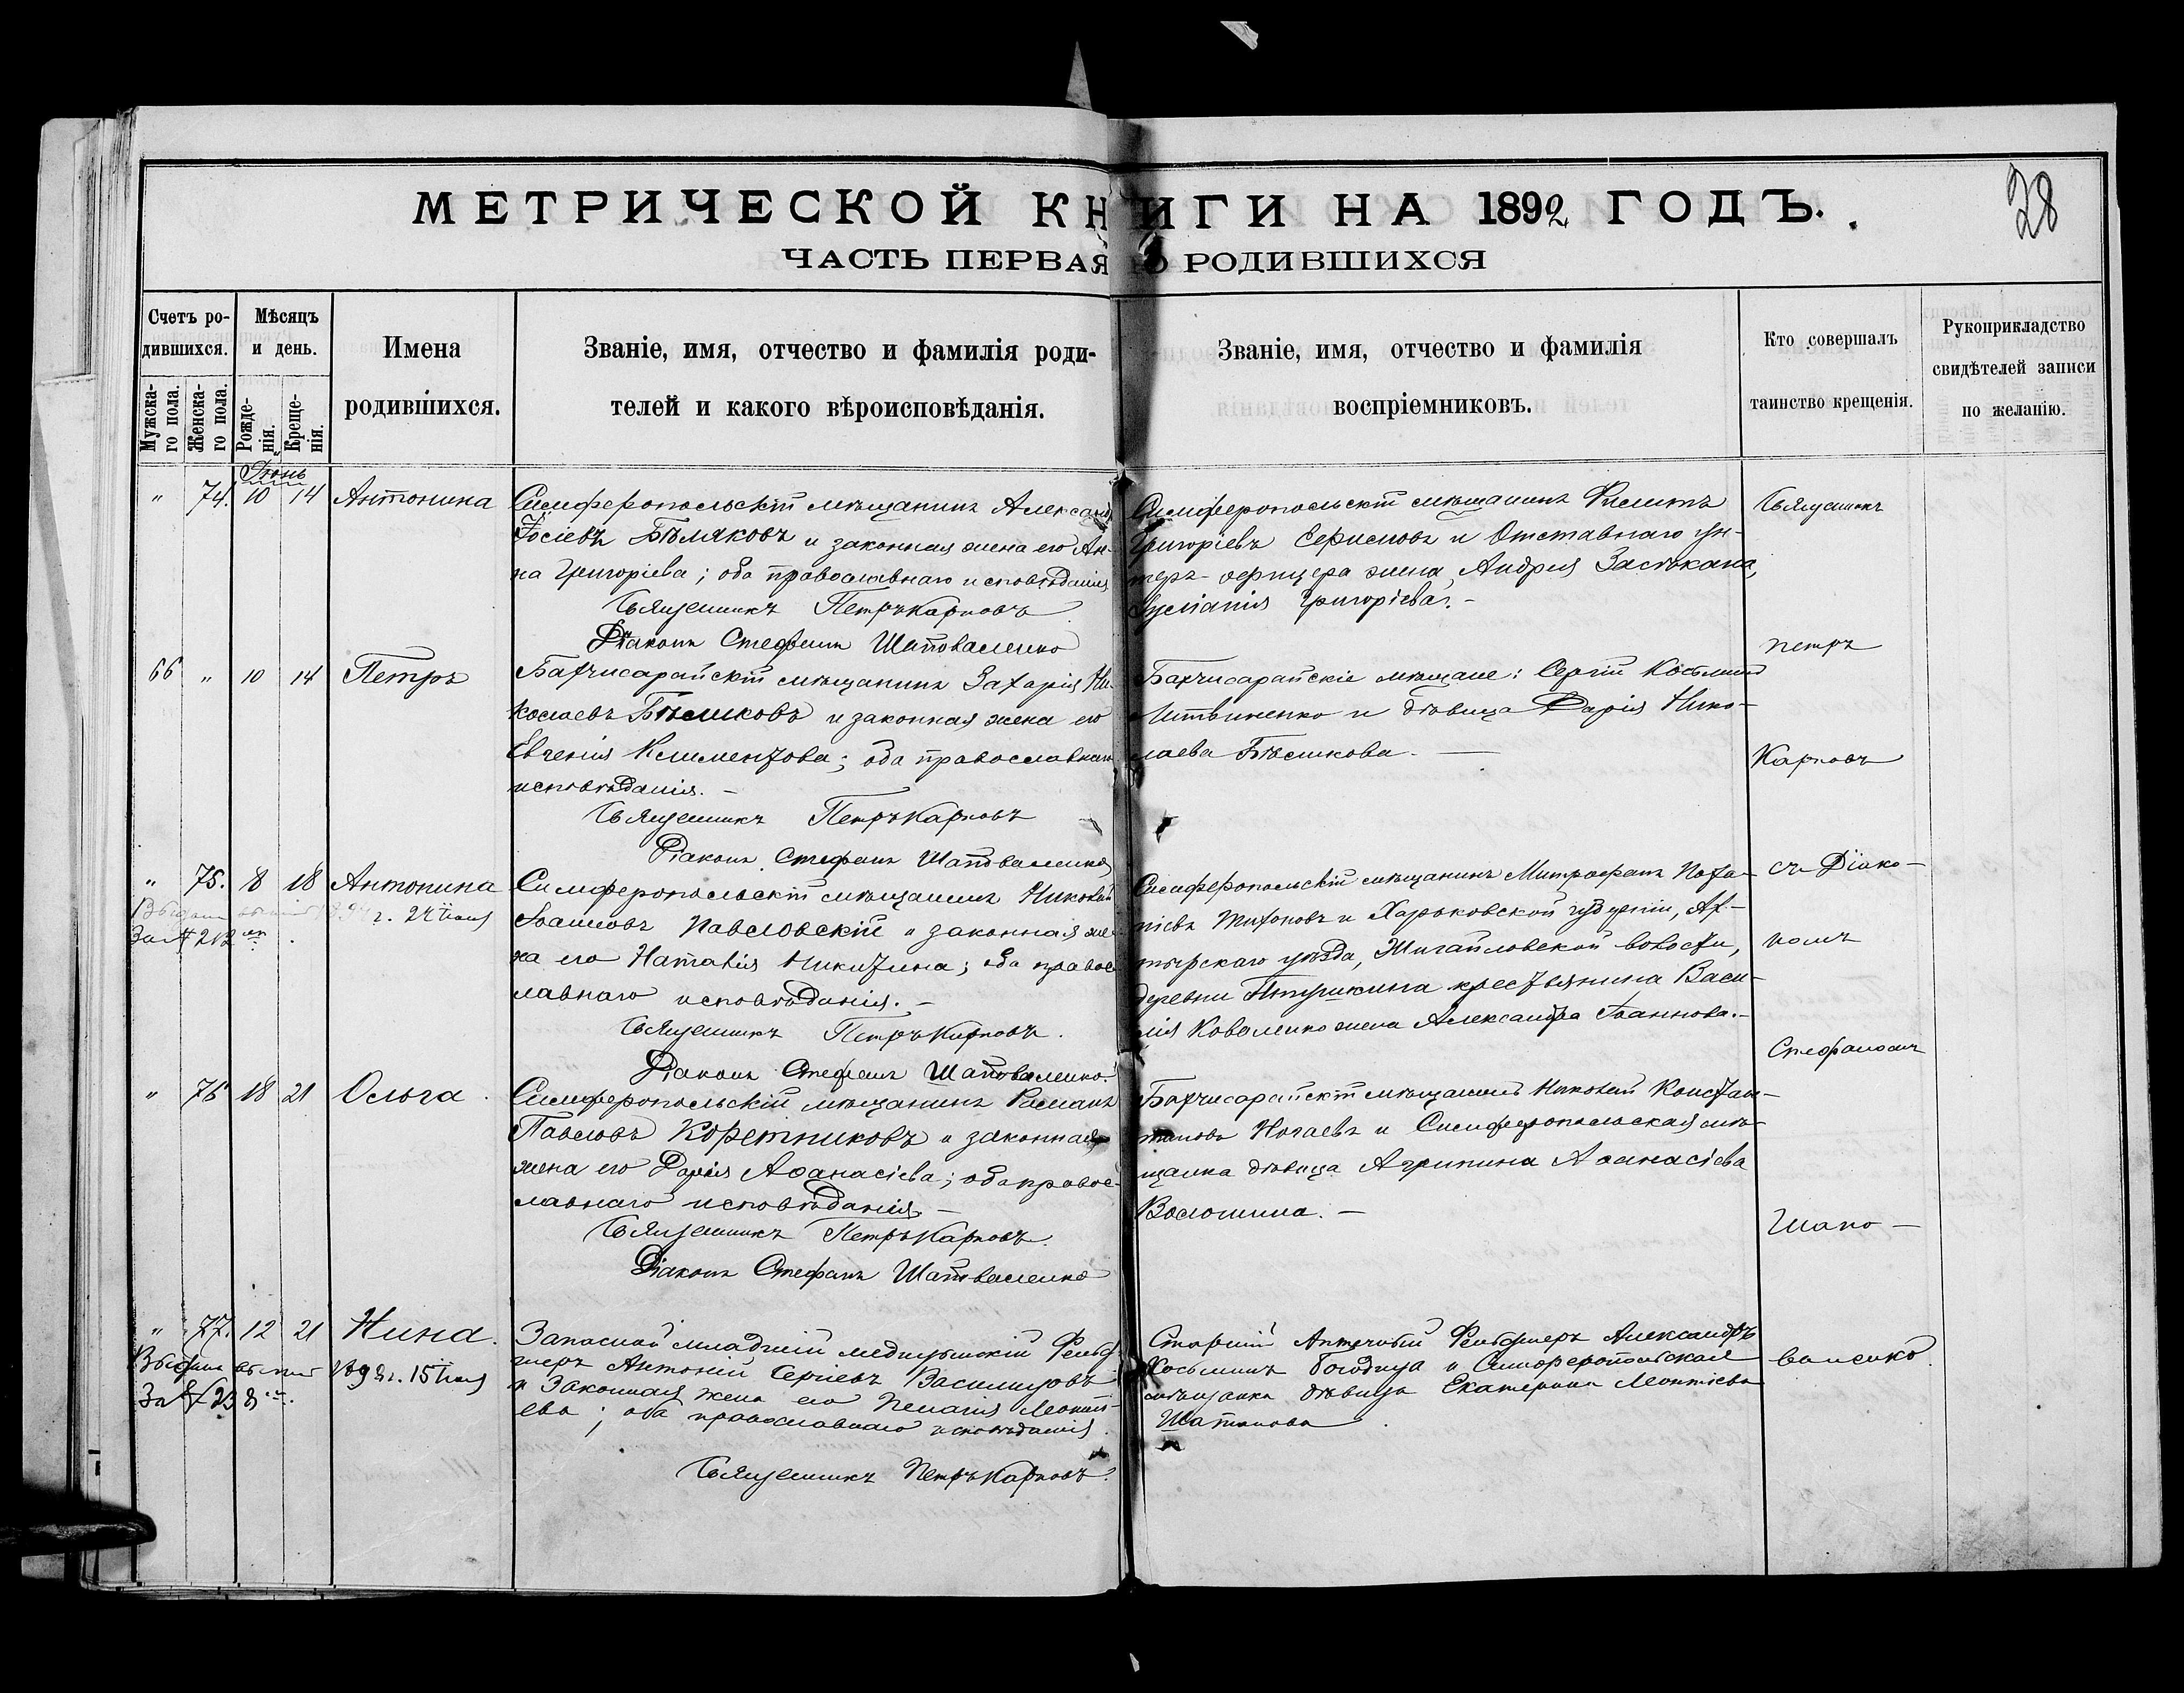 МЕТРИЧЕСКОЙ КНИГИ НА 1892 ГОДЪ.
28
ЧАСТЬ ПЕРВАЯ О РОДИВШИХСЯ
Счетъ ро-
дившихся.
Мужска-
го пола.
Женска-
го пола.
Мѣсяцъ
и день.
Рожде-
нія.
Креще-
нія.
Имена
родившихся.
Званіе, имя, отчество и фамилія роди-
телей и какого вѣроисповѣданія.
Званіе, имя, отчество и фамилія
воспріемниковъ.
Кто совершалъ
таинство крещенія.
Рукоприкладство
свидѣтелей записи
по желанію.
Іюнь
" 74. 10 14 Антонина
Симферопольскій мѣщанинъ Александръ
Іосіевъ Бѣляковъ и законная жена его Ан-
на Григоріева; оба православнаго исповѣданія
Священникъ Петръ Карповъ
Діаконъ Стефанъ Шаповаленко
Симферопольскій мѣщанинъ
Григоріевъ и Отставнаго ун-
теръ-офицера жена, Андрея
Григоріева. -
Священникъ
Петръ
66 " 10 14 Петръ
Бахчисарайскій мѣщанинъ Захарія Ни-
колаевъ Бѣликовъ и законная жена его
Евгенія Климентова; оба православнаго
исповѣданія. -
Священникъ Петръ Карповъ
Діаконъ Стефанъ Шаповаленко
Бахчисарайскіе мѣщане: Сергій Косьминъ
Литвиненко и дѣвица Дарія Нико-
лаева Бѣликова. -
Карповъ
" 75. 8 18 Антонина
г. 24 Іюня
За № 212
Симферопольскій мѣщанинъ Николай
Іоанновъ Павловскій и законная же-
на его Наталія Никитина; оба правос-
лавнаго исповѣданія. -
Священникъ Петръ Карповъ.
Діаконъ Стефанъ Шаповаленко.
Симферопольскій мѣщанинъ Митрофанъ Пота-
піевъ Тихоновъ и Харьковской губерніи, Ах-
тырскаго уѣзда, Жигайловской волости,
деревни крестьянина Васи-
лія Коваленко жена Александра Іоаннова. -
съ Діако-
номъ
Стефаномъ
" 76 18 21 Ольга.
Симферопольскій мѣщанинъ Романъ
Павловъ Коретниковъ и законная
жена его Дарія Аѳанасіева; оба правос-
лавнаго исповѣданія. -
Священникъ Петръ Карповъ.
Діаконъ Стефанъ Шаповаленко
Бахчисарайскій мѣщанинъ Николай Констан-
тиновъ Ногаевъ и Симферопольская мѣ-
щанка дѣвица Агрипина Аѳанасіева
Волошина. -
Шапо-
" 77. 12 21 Нина.
15 Іюня
Запасной младшій медицинскій Фельд-
шеръ Антоній Сергіевъ Василицовъ
и законная жена его Пелагія
ева; оба православнаго исповѣданія.
Священникъ Петръ Карповъ.
Старшій Аптечный Фельдшеръ Александръ
Косьминъ и Симферопольская
мѣщанка дѣвица Екатерина
валенко.